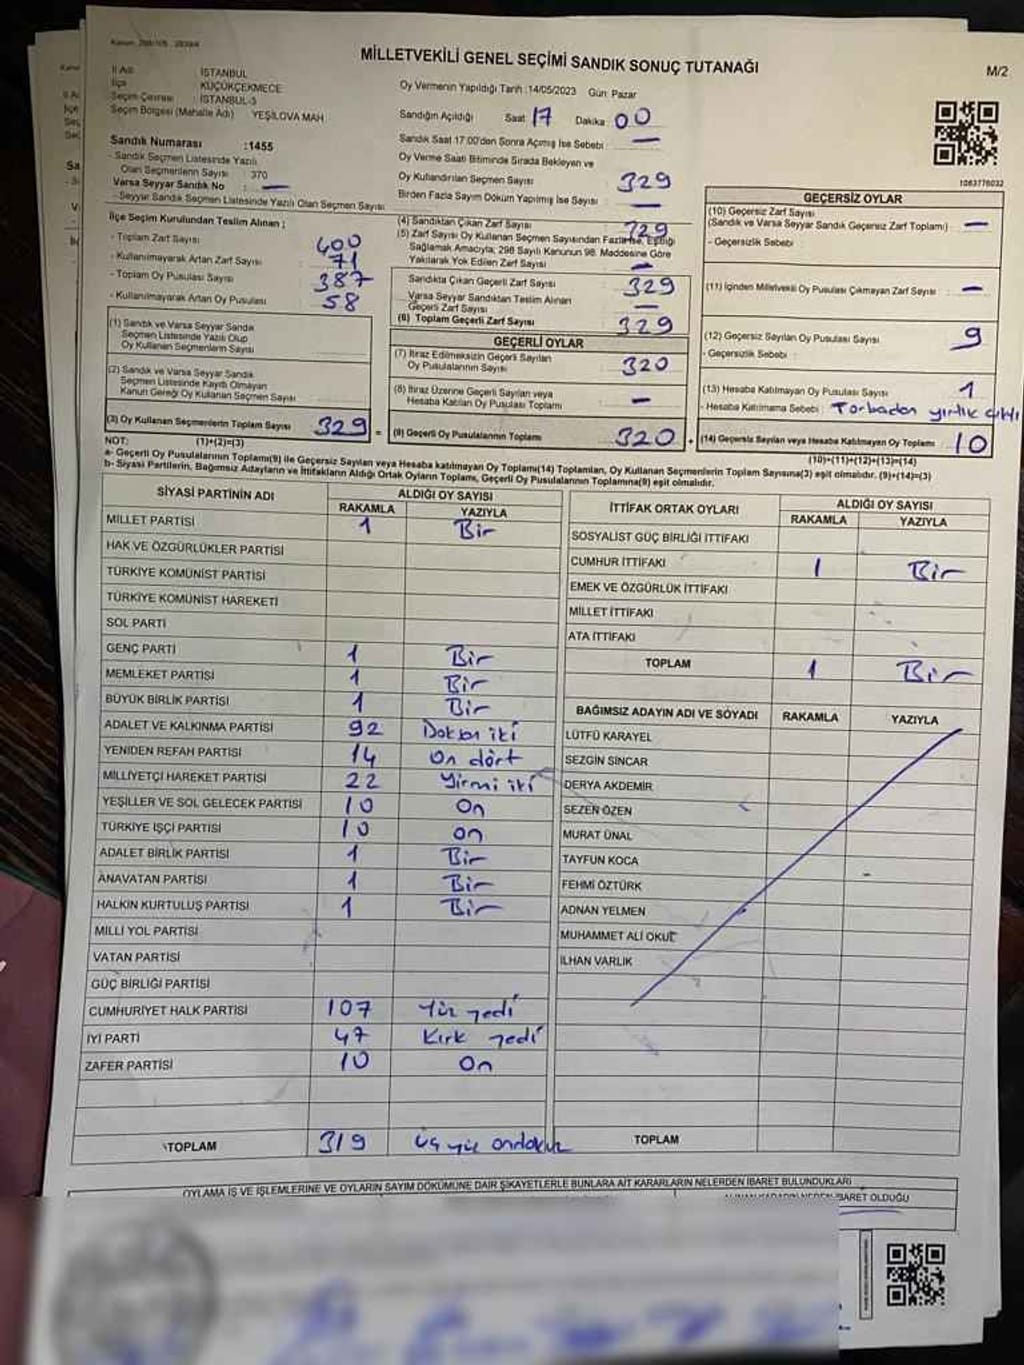 MİLLETVEKİLİ GENEL SEÇİMİ SANDIK SONUÇ TUTANAĞI
M/2
İl Adı : İSTANBUL
İlçe : KÜÇÜKÇEKMECE
Seçim Çevresi : İSTANBUL-3
Seçim Bölgesi (Mahalle Adı) YEŞİLOVA MAH
Oy Vermenin Yapıldığı Tarih :14/05/2023 Gün: Pazar
Sandığın Açıldığı Saat 17 Dakika 00
Sandık Saat 17:00'den Sonra Açılmış İse Sebebi —
Sandık Numarası :1455
- Sandık Seçmen Listesinde Yazılı
Olan Seçmenlerin Sayısı : 370
Varsa Seyyar Sandık No —
- Seyyar Sandık Seçmen Listesinde Yazılı Olan Seçmen Sayısı
Oy Verme Saati Bitiminde Sırada Bekleyen ve
Oy Kullandırılan Seçmen Sayısı 329
Birden Fazla Sayım Döküm Yapılmış İse Sayısı —
1083776032
İlçe Seçim Kurulundan Teslim Alınan ;
- Toplam Zarf Sayısı 400
- Kullanılmayarak Artan Zarf Sayısı 71
- Toplam Oy Pusulası Sayısı 387
- Kullanılmayarak Artan Oy Pusulası 58
(1) Sandık ve Varsa Seyyar Sandık
Seçmen Listesinde Yazılı Olup
Oy Kullanan Seçmenlerin Sayısı
(2) Sandık ve Varsa Seyyar Sandık
Seçmen Listesinde Kayıtlı Olmayan
Kanun Gereği Oy Kullanan Seçmen Sayısı
(3) Oy Kullanan Seçmenlerin Toplam Sayısı 329 =
(4) Sandıktan Çıkan Zarf Sayısı 329
(5) Zarf Sayısı Oy Kullanan Seçmen Sayısından Fazla İse, Eşitliği
Sağlamak Amacıyla; 298 Sayılı Kanunun 98. Maddesine Göre
Yakılarak Yok Edilen Zarf Sayısı —
Sandıkta Çıkan Geçerli Zarf Sayısı 329
Varsa Seyyar Sandıktan Teslim Alınan
Geçerli Zarf Sayısı —
(6) Toplam Geçerli Zarf Sayısı 329
GEÇERLİ OYLAR
(7) İtiraz Edilmeksizin Geçerli Sayılan
Oy Pusulalarının Sayısı 320
(8) İtiraz Üzerine Geçerli Sayılan veya
Hesaba Katılan Oy Pusulası Toplamı —
(9) Geçerli Oy Pusulalarının Toplamı 320 +
GEÇERSİZ OYLAR
(10) Geçersiz Zarf Sayısı
(Sandık ve Varsa Seyyar Sandık Geçersiz Zarf Toplamı) —
- Geçersizlik Sebebi :
(11) İçinden Milletvekili Oy Pusulası Çıkmayan Zarf Sayısı : —
(12) Geçersiz Sayılan Oy Pusulası Sayısı : 9
- Geçersizlik Sebebi :
(13) Hesaba Katılmayan Oy Pusulası Sayısı : 1
- Hesaba Katılmama Sebebi : Torbadan yırtık çıktı
(14) Geçersiz Sayılan veya Hesaba Katılmayan Oy Toplamı 10
NOT: (1)+(2)=(3)
(10)+(11)+(12)+(13)=(14)
a- Geçerli Oy Pusulalarının Toplamı(9) ile Geçersiz Sayılan veya Hesaba Katılmayan Oy Toplamı(14) Toplamları, Oy Kullanan Seçmenlerin Toplam Sayısına(3) eşit olmalıdır. (9)+(14)=(3)
b- Siyasi Partilerin, Bağımsız Adayların ve İttifakların Aldığı Ortak Oyların Toplamı, Geçerli Oy Pusulalarının Toplamına(9) eşit olmalıdır.
SİYASİ PARTİNİN ADI ALDIĞI OY SAYISI
RAKAMLA YAZIYLA
MİLLET PARTİSİ 1 Bir
HAK VE ÖZGÜRLÜKLER PARTİSİ
TÜRKİYE KOMÜNİST PARTİSİ
TÜRKİYE KOMÜNİST HAREKETİ
SOL PARTİ
GENÇ PARTİ 1 Bir
MEMLEKET PARTİSİ 1 Bir
BÜYÜK BİRLİK PARTİSİ 1 Bir
ADALET VE KALKINMA PARTİSİ 92 Doksan iki
YENİDEN REFAH PARTİSİ 14 On dört
MİLLİYETÇİ HAREKET PARTİSİ 22 Yirmi iki
YEŞİLLER VE SOL GELECEK PARTİSİ 10 On
TÜRKİYE İŞÇİ PARTİSİ 10 On
ADALET BİRLİK PARTİSİ 1 Bir
ANAVATAN PARTİSİ 1 Bir
HALKIN KURTULUŞ PARTİSİ 1 Bir
MİLLİ YOL PARTİSİ
VATAN PARTİSİ
GÜÇ BİRLİĞİ PARTİSİ
CUMHURİYET HALK PARTİSİ 107 Yüz yedi
İYİ PARTİ 47 Kırk yedi
ZAFER PARTİSİ 10 On
TOPLAM 319 Üç yüz ondokuz
İTTİFAK ORTAK OYLARI ALDIĞI OY SAYISI
RAKAMLA YAZIYLA
SOSYALİST GÜÇ BİRLİĞİ İTTİFAKI
CUMHUR İTTİFAKI 1 Bir
EMEK VE ÖZGÜRLÜK İTTİFAKI
MİLLET İTTİFAKI
ATA İTTİFAKI
TOPLAM 1 Bir
BAĞIMSIZ ADAYIN ADI VE SOYADI RAKAMLA YAZIYLA
LÜTFÜ KARAYEL
SEZGİN SİNCAR
DERYA AKDEMİR
SEZEN ÖZEN
MURAT ÜNAL
TAYFUN KOCA
FEHMİ ÖZTÜRK
ADNAN YELMEN
MUHAMMET ALİ OKUL
İLHAN VARLIK
TOPLAM
OYLAMA İŞ VE İŞLEMLERİNE VE OYLARIN SAYIM DÖKÜMÜNE DAİR ŞİKAYETLERLE BUNLARA AİT KARARLARIN NELERDEN İBARET BULUNDUKLARI
İBARET OLDUĞU